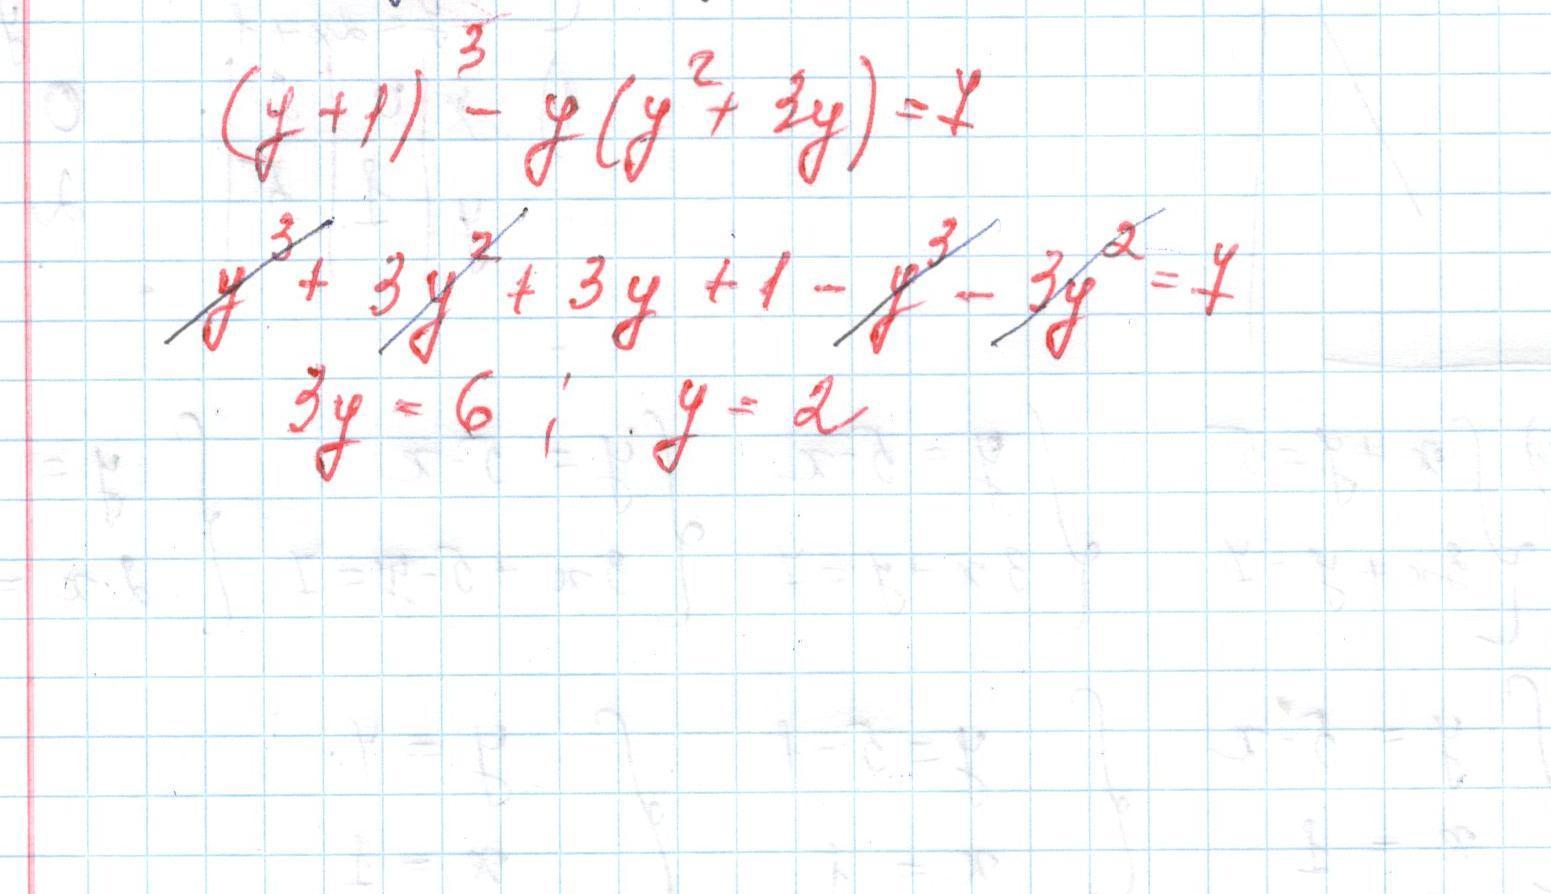 (y+1)³ - y(y² + 3y) = 7
y³ + 3y² + 3y + 1 - y³ - 3y² = 7
3y = 6 ; y = 2